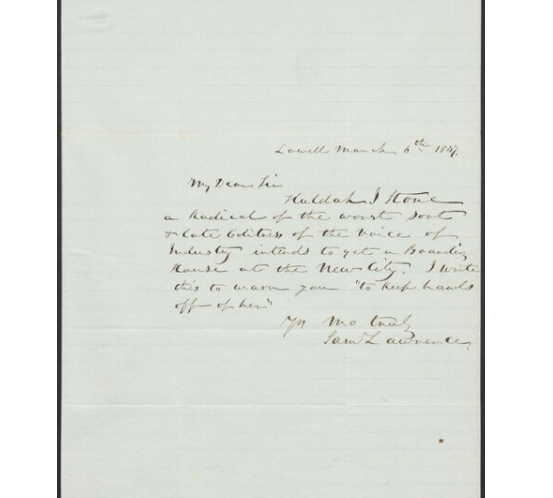 Lowell March 6th 1847.
My Dear Sir
Huldah J Stone
a Radical of the worst sort
& late Editress of the Voice of
Industry intends to get a Boarding
House at the New City. I write
this to warn you "to keep hands
off of her"
Yr Mo truly
Saml Lawrence.